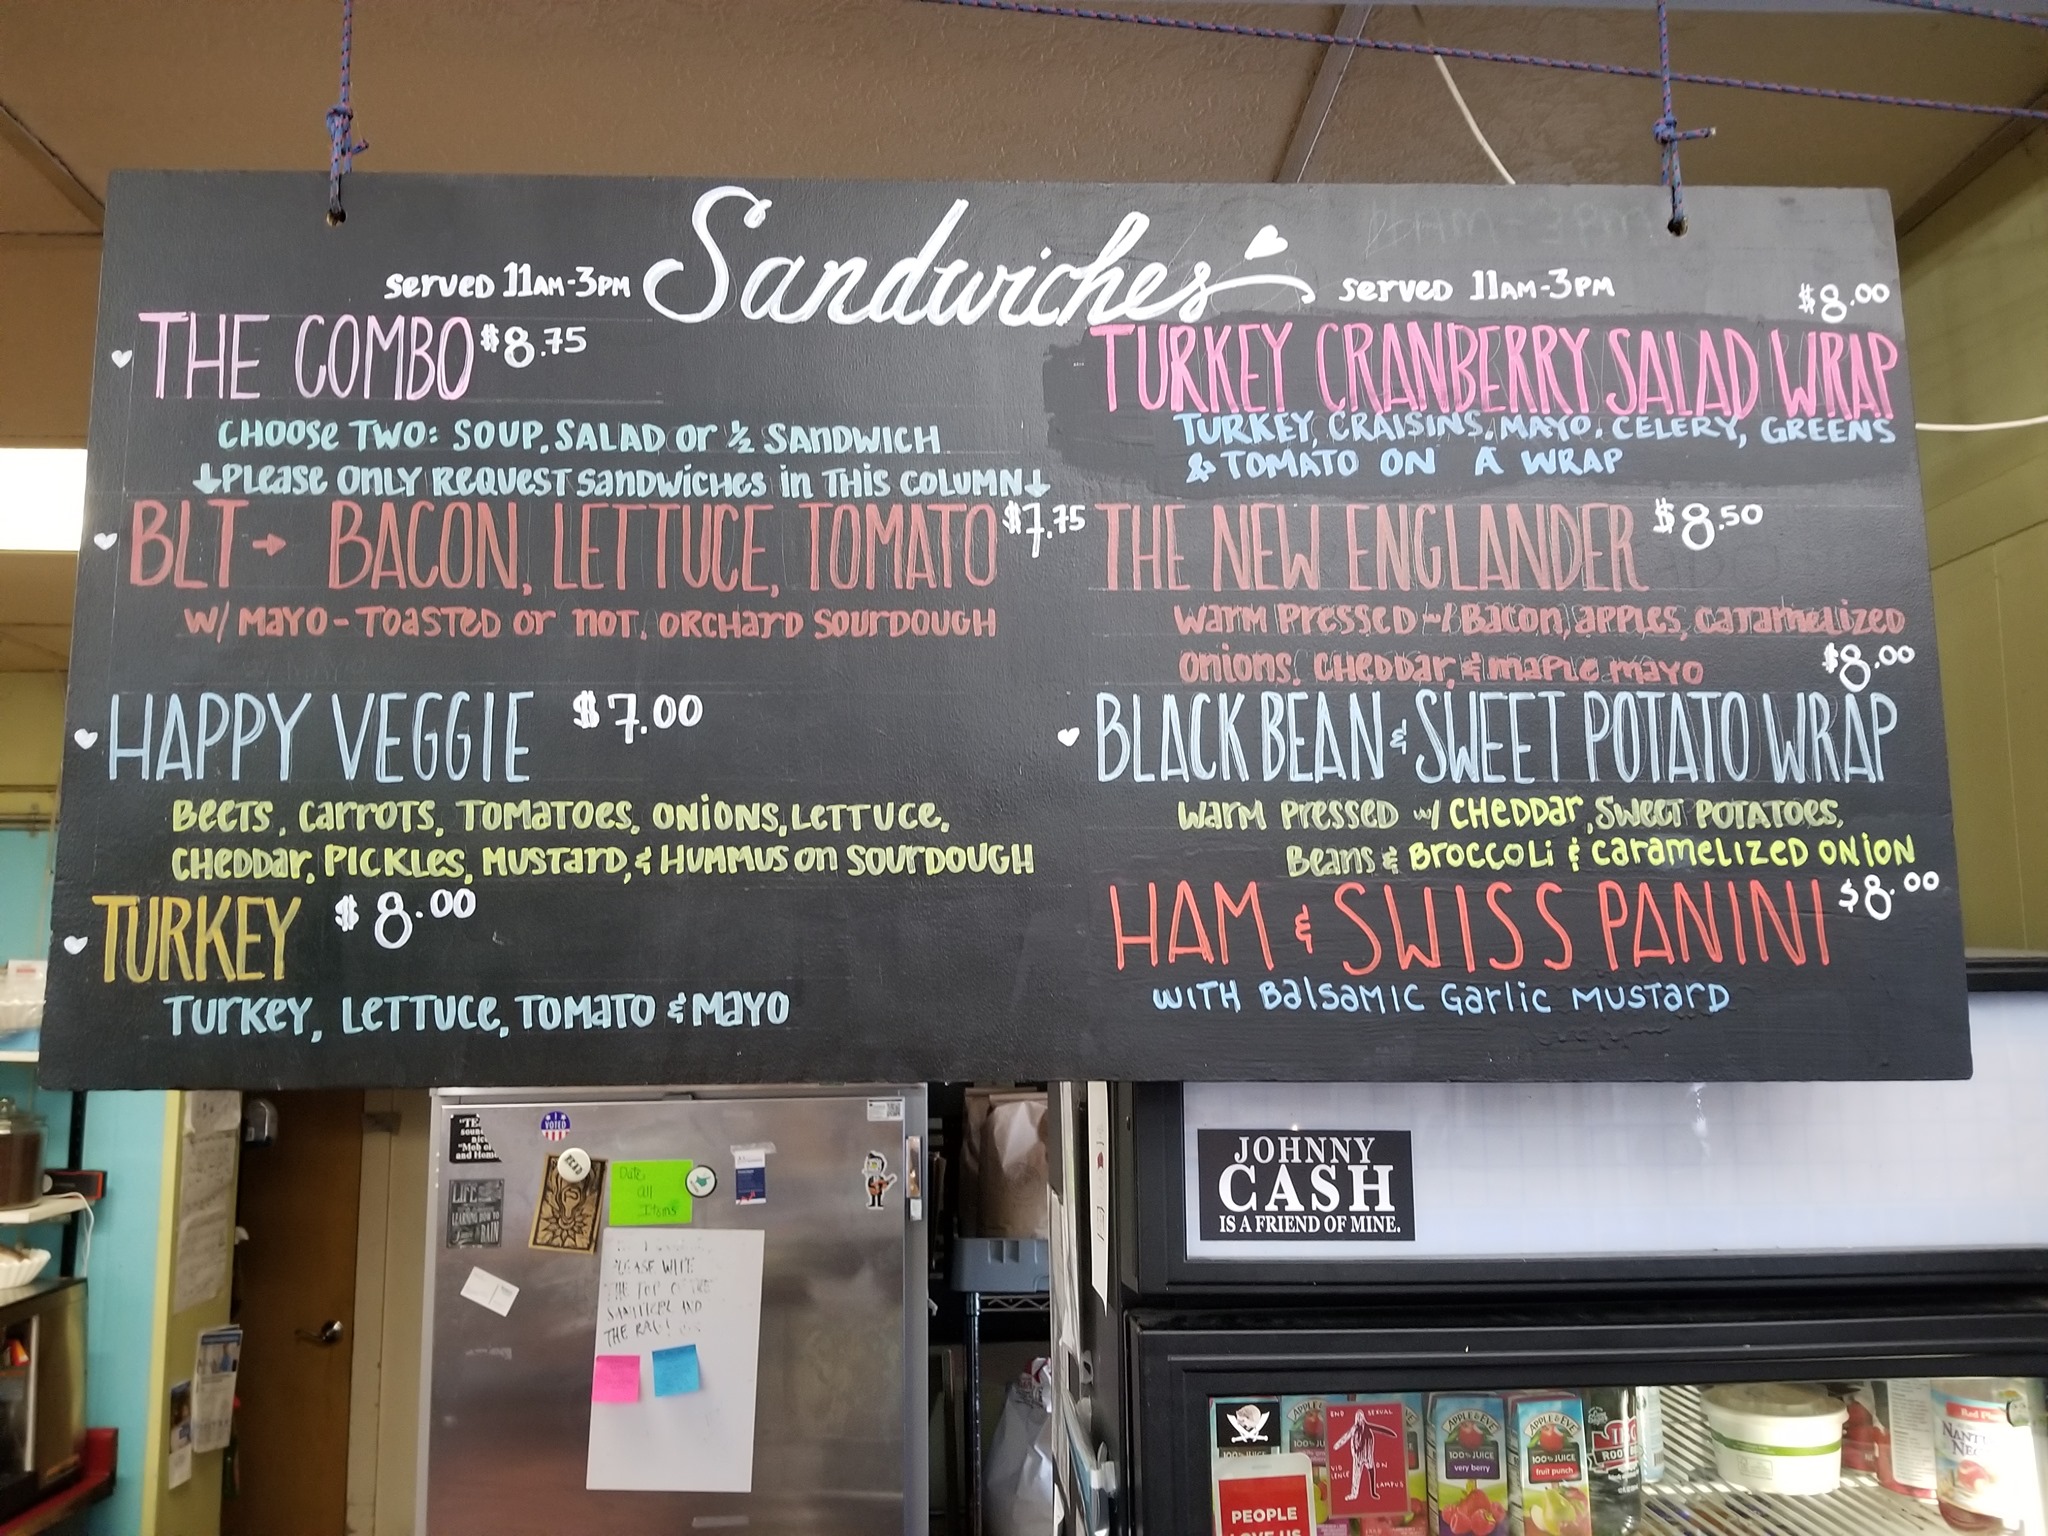 Sandwiches
served 11am-3pm
THE COMBO $8.75
CHOOSE TWO: SOUP, SALAD or ½ SANDWICH
↓PLEASE ONLY REQUEST SANDWICHES IN THIS COLUMN↓
BLT → BACON, LETTUCE, TOMATO $7.75
W/ MAYO - TOASTED or NOT. ORCHARD SOURDOUGH
HAPPY VEGGIE $7.00
BEETS, CARROTS, TOMATOES, ONIONS, LETTUCE,
CHEDDAR, PICKLES, MUSTARD, & HUMMUS on SOURDOUGH
TURKEY $8.00
TURKEY, LETTUCE, TOMATO & MAYO
served 11am-3pm
$8.00
TURKEY CRANBERRY SALAD WRAP
TURKEY, CRAISINS, MAYO, CELERY, GREENS
& TOMATO ON A WRAP
THE NEW ENGLANDER $8.50
WARM PRESSED w/ BACON, APPLES, CARAMELIZED
ONIONS, CHEDDAR, & MAPLE MAYO
$8.00
BLACK BEAN & SWEET POTATO WRAP
WARM PRESSED w/ CHEDDAR, SWEET POTATOES,
BEANS & BROCCOLI & CARAMELIZED ONION
HAM & SWISS PANINI $8.00
WITH BALSAMIC GARLIC MUSTARD
I VOTED
and Home
LIFE
LEARNING HOW TO
RAIN
Date
All
Items
PLEASE WIPE
THE TOP OF THE
SANITIZER AND
THE RAG!
JOHNNY
CASH
IS A FRIEND OF MINE.
END SEXUAL
VIOLENCE ON
CAMPUS
APPLE & EVE
100% JUICE
very berry
APPLE & EVE
100% JUICE
fruit punch
PEOPLE
LOVE US